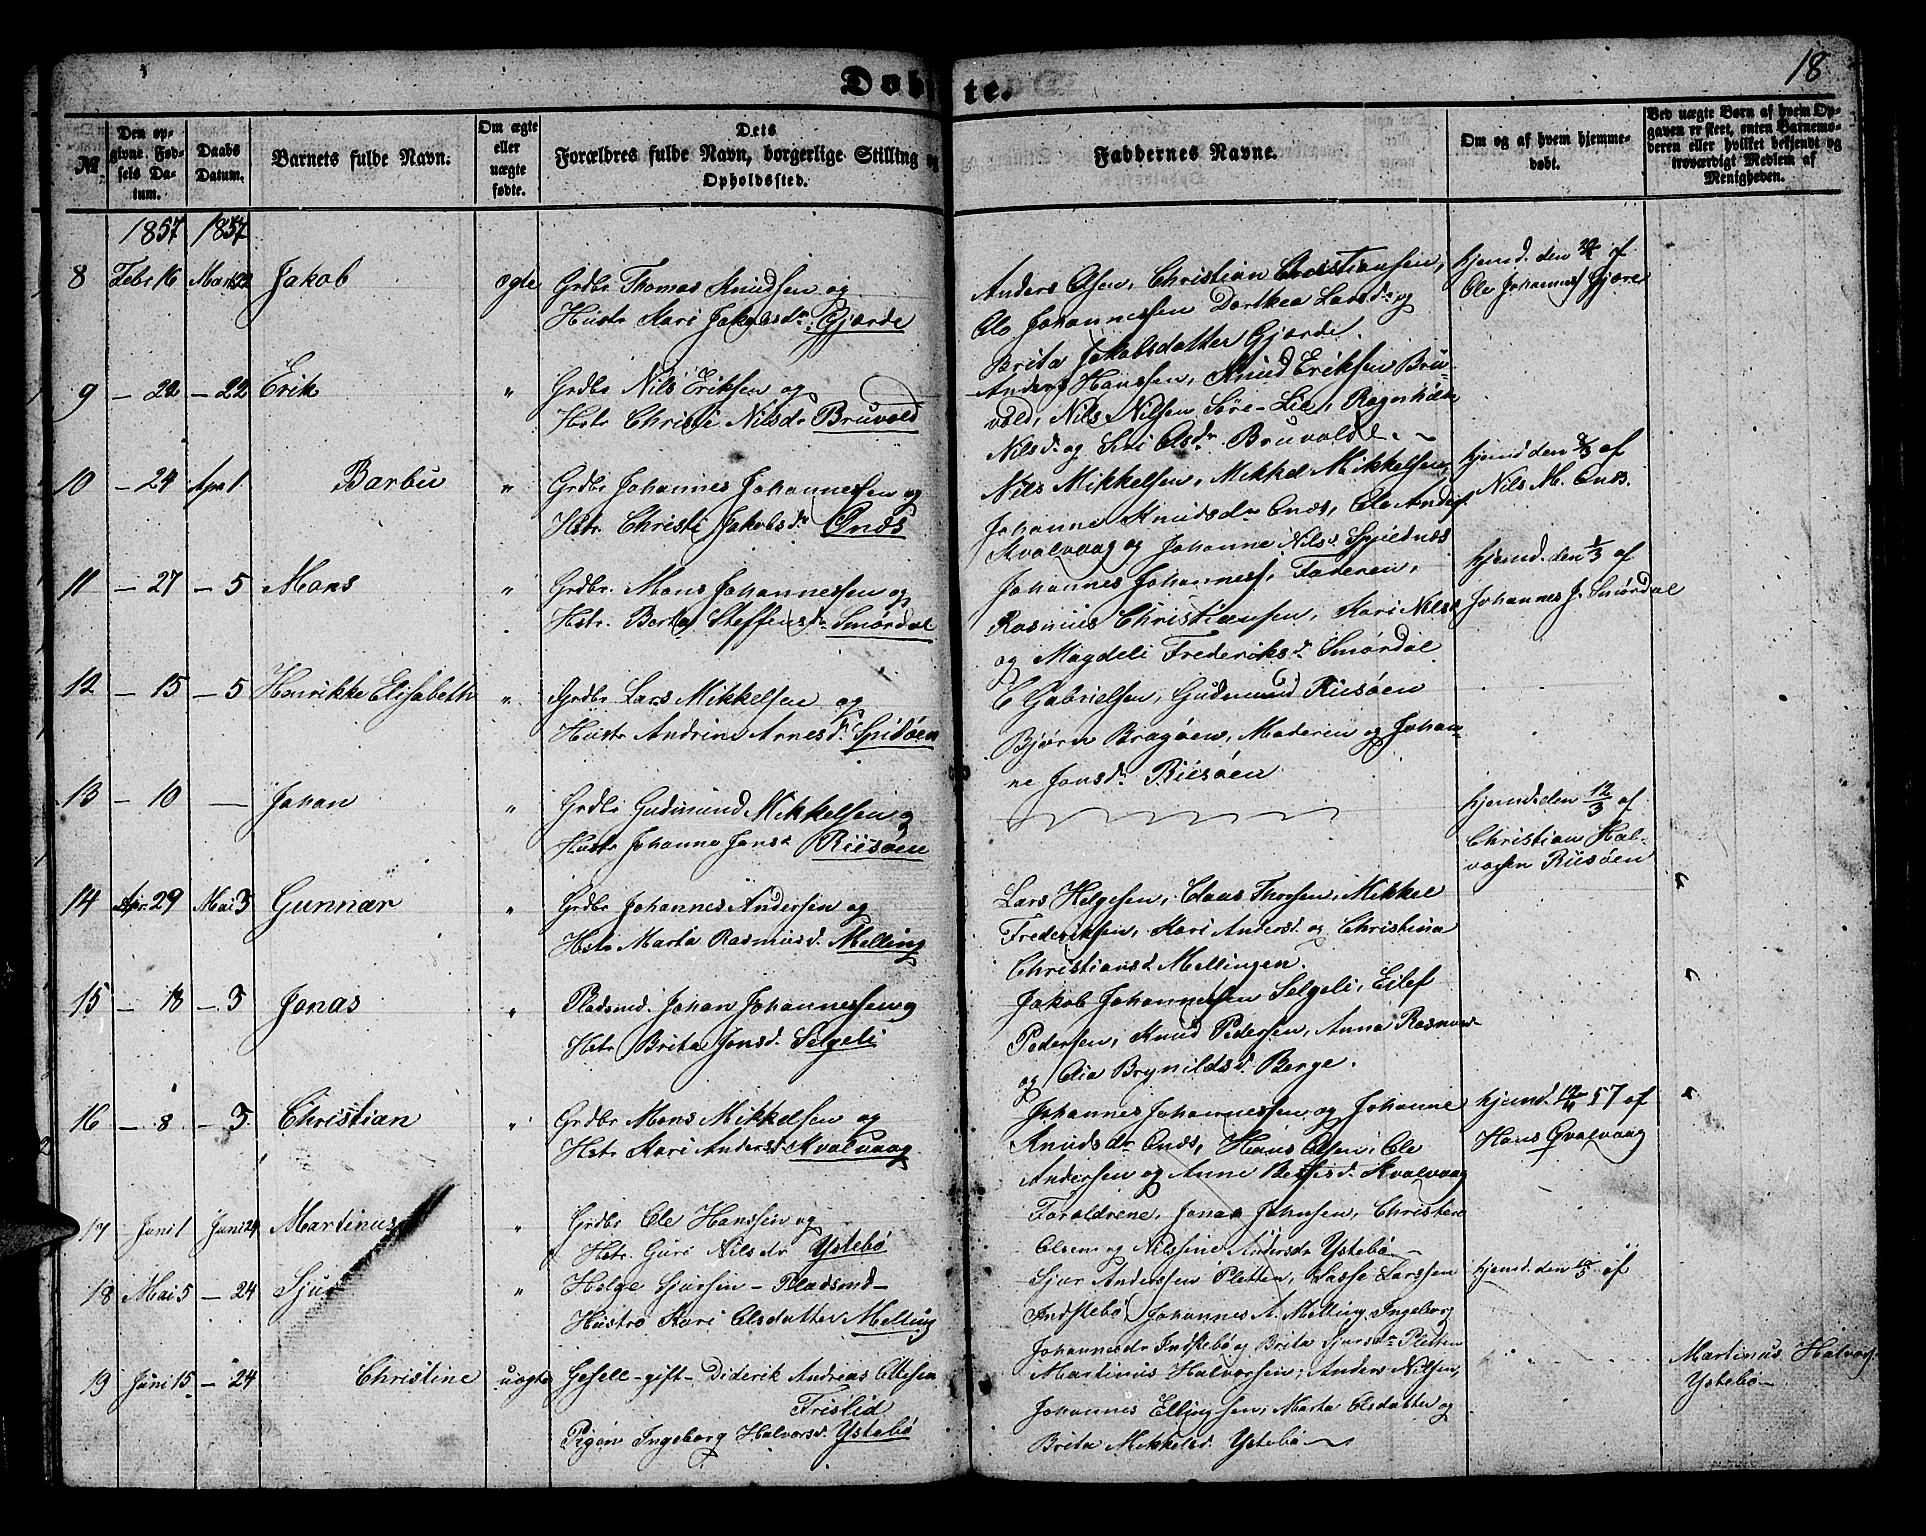 18
Døbte.
No.
Den opgivne Fødsels Datum.
Daabs Datum.
Barnets fulde Navn.
Om ægte eller uægte fødte.
Dets Forældres fulde Navn, borgerlige Stilling og Opholdssted.
Faddernes Navne.
Om og af hvem hjemmedøbt.
Ved uægte Børn af hvem Opgaven er skeet, enten Barnemoderen eller hvilket bekjendt og troværdigt Medlem af Menigheden.
1857 1857
8 Febr 16 Marts 22 Jakob ægte
Grdbr Thomas Knudsen og
Hustr Kari Jakobsdr Gjærde
Anders Olsen, Christian Christiansen,
Ole Johannessen Dorthea Larsdr og
Brita Jakobsdatter Gjærde.
hjemd. den af
Ole Johannes Gjære
9 – 22 – 22 Erik "
Grdbr Nils Eriksen og
Hstr Christi Nilsdr Bruvold
Anders Hanssen, Knud Eriksen Bru-
vold, Nils Nilsen Søre-Lie, Ragnhilda
Nilsd. og Siri Olsdr Bruvold.
10 – 24 Apr 1. Barbu "
Grdbr Johannes Johannessen og
Hstr. Christi Jakobsdr Onds
Nils Mikkelsen, Mikkel Mikkelsen,
Johanne Knudsdr Onds, Ole Anders
Kvalvaag og Johanne Nilsd Spjeldnæs
hjemd den 8/3 af
Nils M. Onds.
11 – 27 – 5 Mons "
Grdbr. Mons Johannessen og
Hstr. Berta Steffensdr Smørdal
Johannes Johanness, Faderen,
Rasmus Christiansen, Kari Nilsd
og Magdeli Frederiksdr Smørdal
hjemd. den 1/3 af
Johannes J. Smørdal
12 – 15 – 5 Henrikke Elisabeth "
Grdbr Lars Mikkelsen og
Hustr Andrine Arnesdr Spidøen
C Gabrielsen, Gudmund Riisøen
Bjørn Bragøen, Moderen og Johan-
ne Jonsdr Riisøen
13 – 10 — Johan "
Grdbr Gudmund Mikkelsen og
Hustr Johanne Jonsd Riisøen
hjemd. den 12/3 af
Christian Hal-
vorsen Riisøen
14 Apr. 29 Mai 3 Gunnar "
Grdbr Johannes Andersen og
Hstr Marta Rasmusd. Melling
Lars Helgesen, Claus Thorsen, Mikkel
Frederiksen, Kari Andersd. og Christina
Christiansd Mellingen.
15 – 18 – 3 Jonas "
Pladsmd. Johan Johannessen og
Hstr Brita Jonsd. Selgeli
Jakob Johannessen Selgeli, Eilef
Pedersen, Knud Pedersen, Anna Rasmus-
og Olia Brynildsd. Berge.
16 – 8 – 3 Christian "
Grdbr Mons Mikkelsen og
Hstr Kari Andersd Kvalvaag
Johannes Johannessen og Johanne
Knudsdr Onds, Hans Olsen, Ole
Andersen og Anne Kvalvaag
hjemd. 12/4 57 af
Hans Qvalvaag
17 Juni 1 Juni 24 Martinus "
Grdbr Ole Hanssen og
Hstr. Guri Nilsdr Ystebø
Forældrene, Jonas Johnsen, Christen
Olsen og Nilssine Andersdr Ystebø
18 Mai 5 – 24 Sjur "
Helge Sjursen – Pladsmd –
Hustro Kari Olsdatter Melling
Sjur Anderssen Pletten, Lasse Larssen
Indstebø Johannes A. Melling, Ingeborg
Johannesdr Indstebø og Brita Sjursdr Pletten
hjemd. den af
19 Juni 15 – 24 Christine uægte
Gesell – gift – Diderik Andreas Ottesen
Fristid
Pigen Ingeborg Halvorsd. Ystebø
Martinus Halvorsen, Anders Nilsen,
Johannes Ellingsen, Marta Olsdatter og
Brita Mikkelsd Ystebø
Martinus Halvors
Ystebø